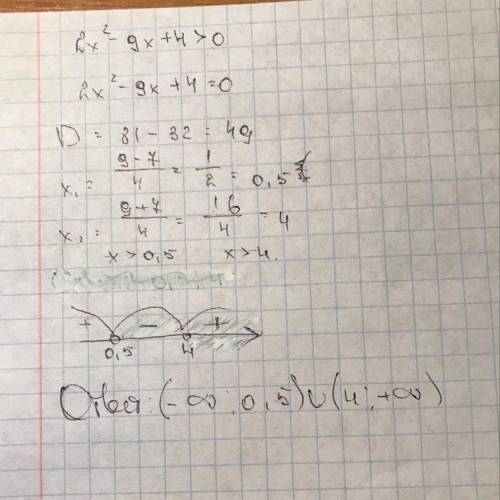 2x² - 9x + 4 > 0
2x² - 9x + 4 = 0
D = 81 - 32 = 49
x₁ = (9-7)/4 = 1/2 = 0,5
x₂ = (9+7)/4 = 16/4 = 4
x > 0,5 x > 4.
+ - +
0,5 4
Ответ: (-∞; 0,5) ∪ (4; +∞)